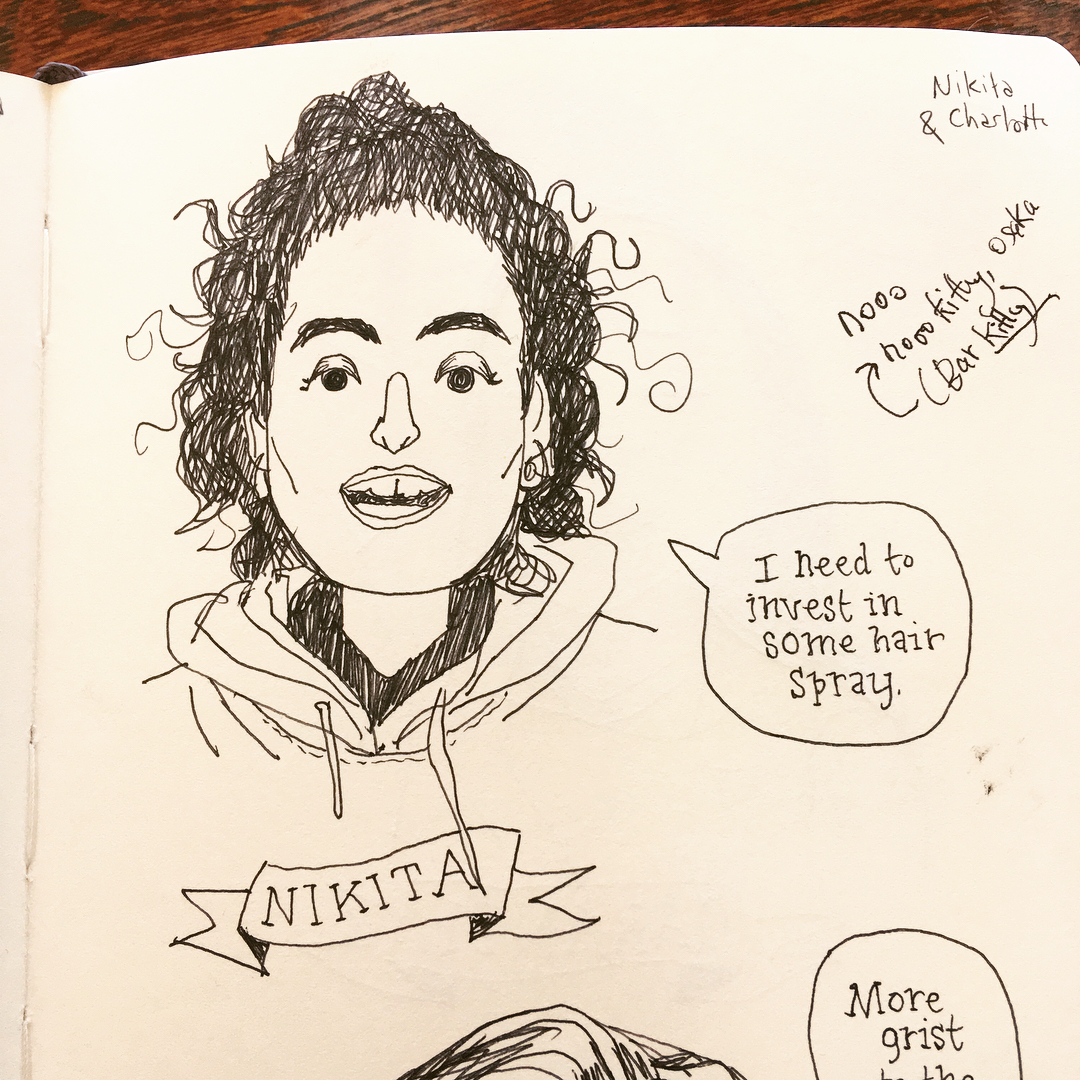 Nikita
& Charlotte
nooo
nooo kitty, oska
(Bar kitty)
I need to
invest in
some hair
spray.
NIKITA
More
grist
to the